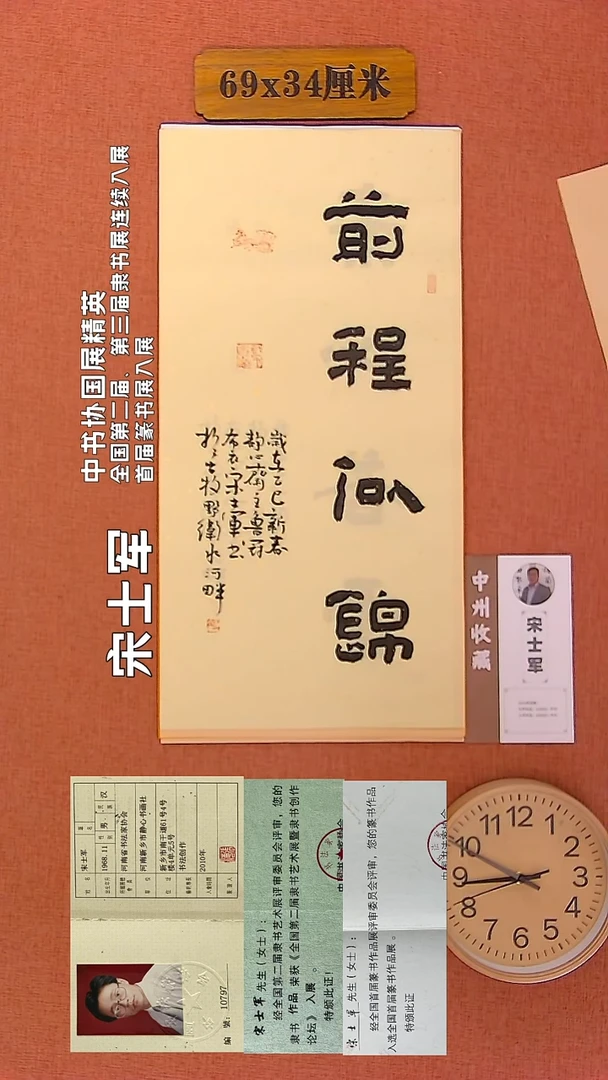 69x34厘米
中书协国展精英
全国第二届、第三届隶书展连续入展
首届篆书展入展
宋士军
前程似锦
岁在乙巳新春
静心斋主鲁冠
布衣宋士军书
于古牧野卫水河畔
宋士军
姓名 宋士军
1968.11 男 汉
河南省书法家协会
河南新乡市静心书画社
新乡市南干道61号4号
楼4单元5号
书法创作
2010年
编號：10797
宋士军 先生（女士）：
经全国第二届隶书艺术展评审委员会评审，您的
隶书 作品 荣获《全国第二届隶书艺术展暨隶书创作
论坛》 入展 。
特颁此证！
宋士军 先生（女士）：
经全国首届篆书作品展评审委员会评审，您的篆书作品
入选全国首届篆书作品展 。
特颁此证
12
1
2
3
4
5
6
7
8
9
10
11